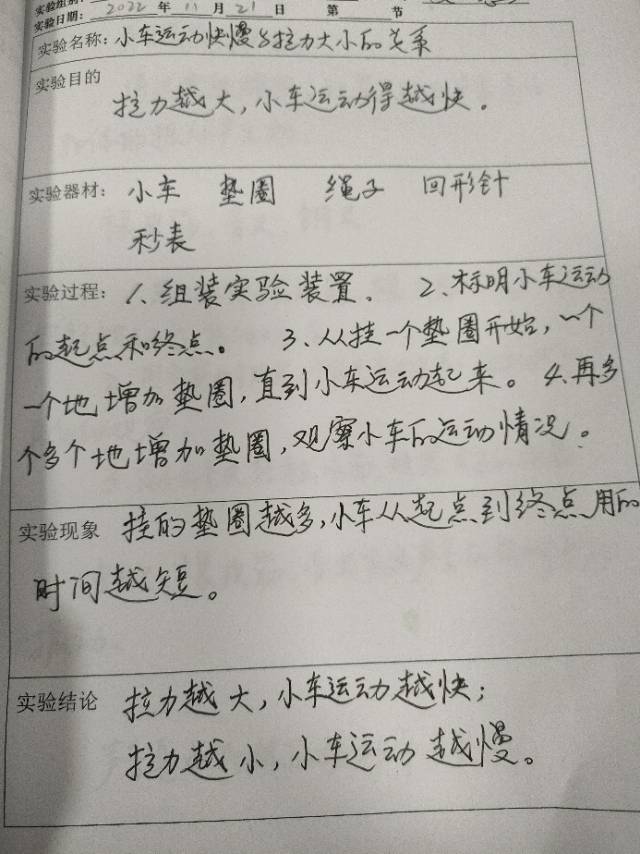 实验日期: 2022 年 11 月 21 日 第 节
实验名称: 小车运动快慢与拉力大小的关系
实验目的
拉力越大,小车运动得越快。
实验器材: 小车 垫圈 绳子 回形针
秒表
实验过程: 1、组装实验装置. 2、标明小车运动
的起点和终点。 3、从挂一个垫圈开始,一个
一个地增加垫圈,直到小车运动起来。4.再多
个多个地增加垫圈,观察小车的运动情况。
实验现象 挂的垫圈越多,小车从起点到终点用的
时间越短。
实验结论 拉力越大,小车运动越快;
拉力越小,小车运动越慢。